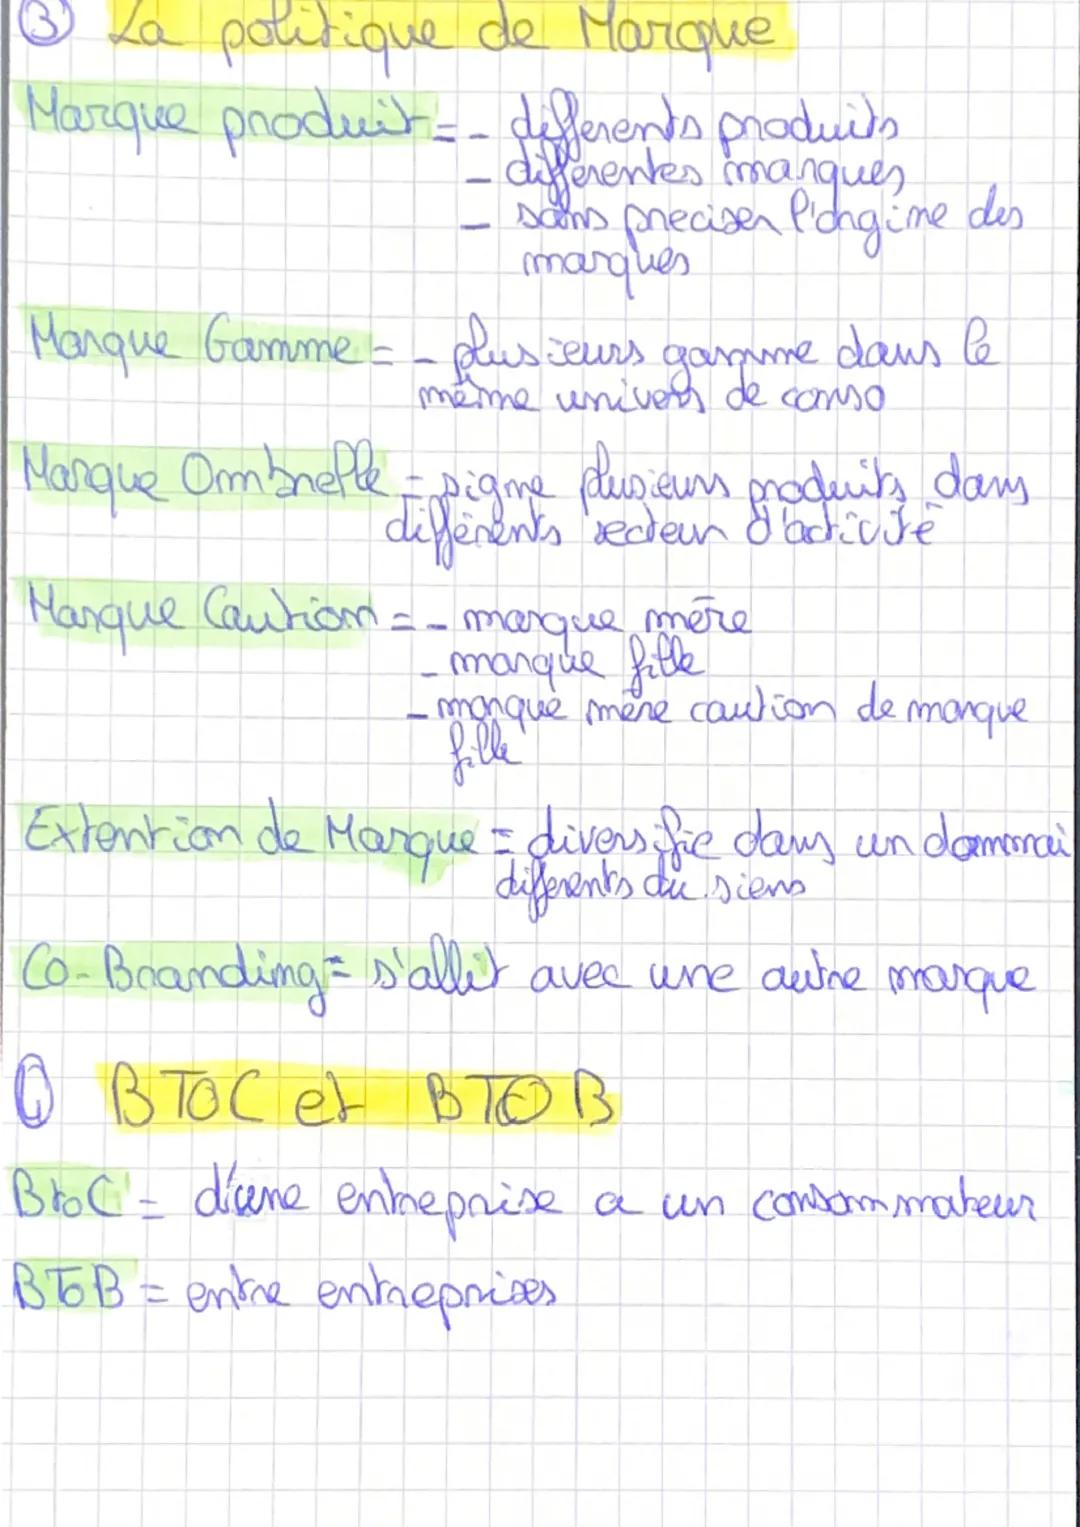 ③ La politique de Marque
Marque produit = - differents produits
- différentes marques
- sans preciser l'origine des
marques
Marque Gamme = - plusieurs gamme dans le
même univers de conso
Marque Ombrelle = signe plusieurs produits dans
différents secteur d'activité
Marque Caution = - marque mère
- marque fille
- marque mère caution de marque
fille
Extention de Marque = diversifie dans un dommai
differents du siens
Co-Branding = s'allit avec une autre marque
④ BTOC et BTOB
BtoC = d'une entreprise a un consommateur
BToB = entre entreprises